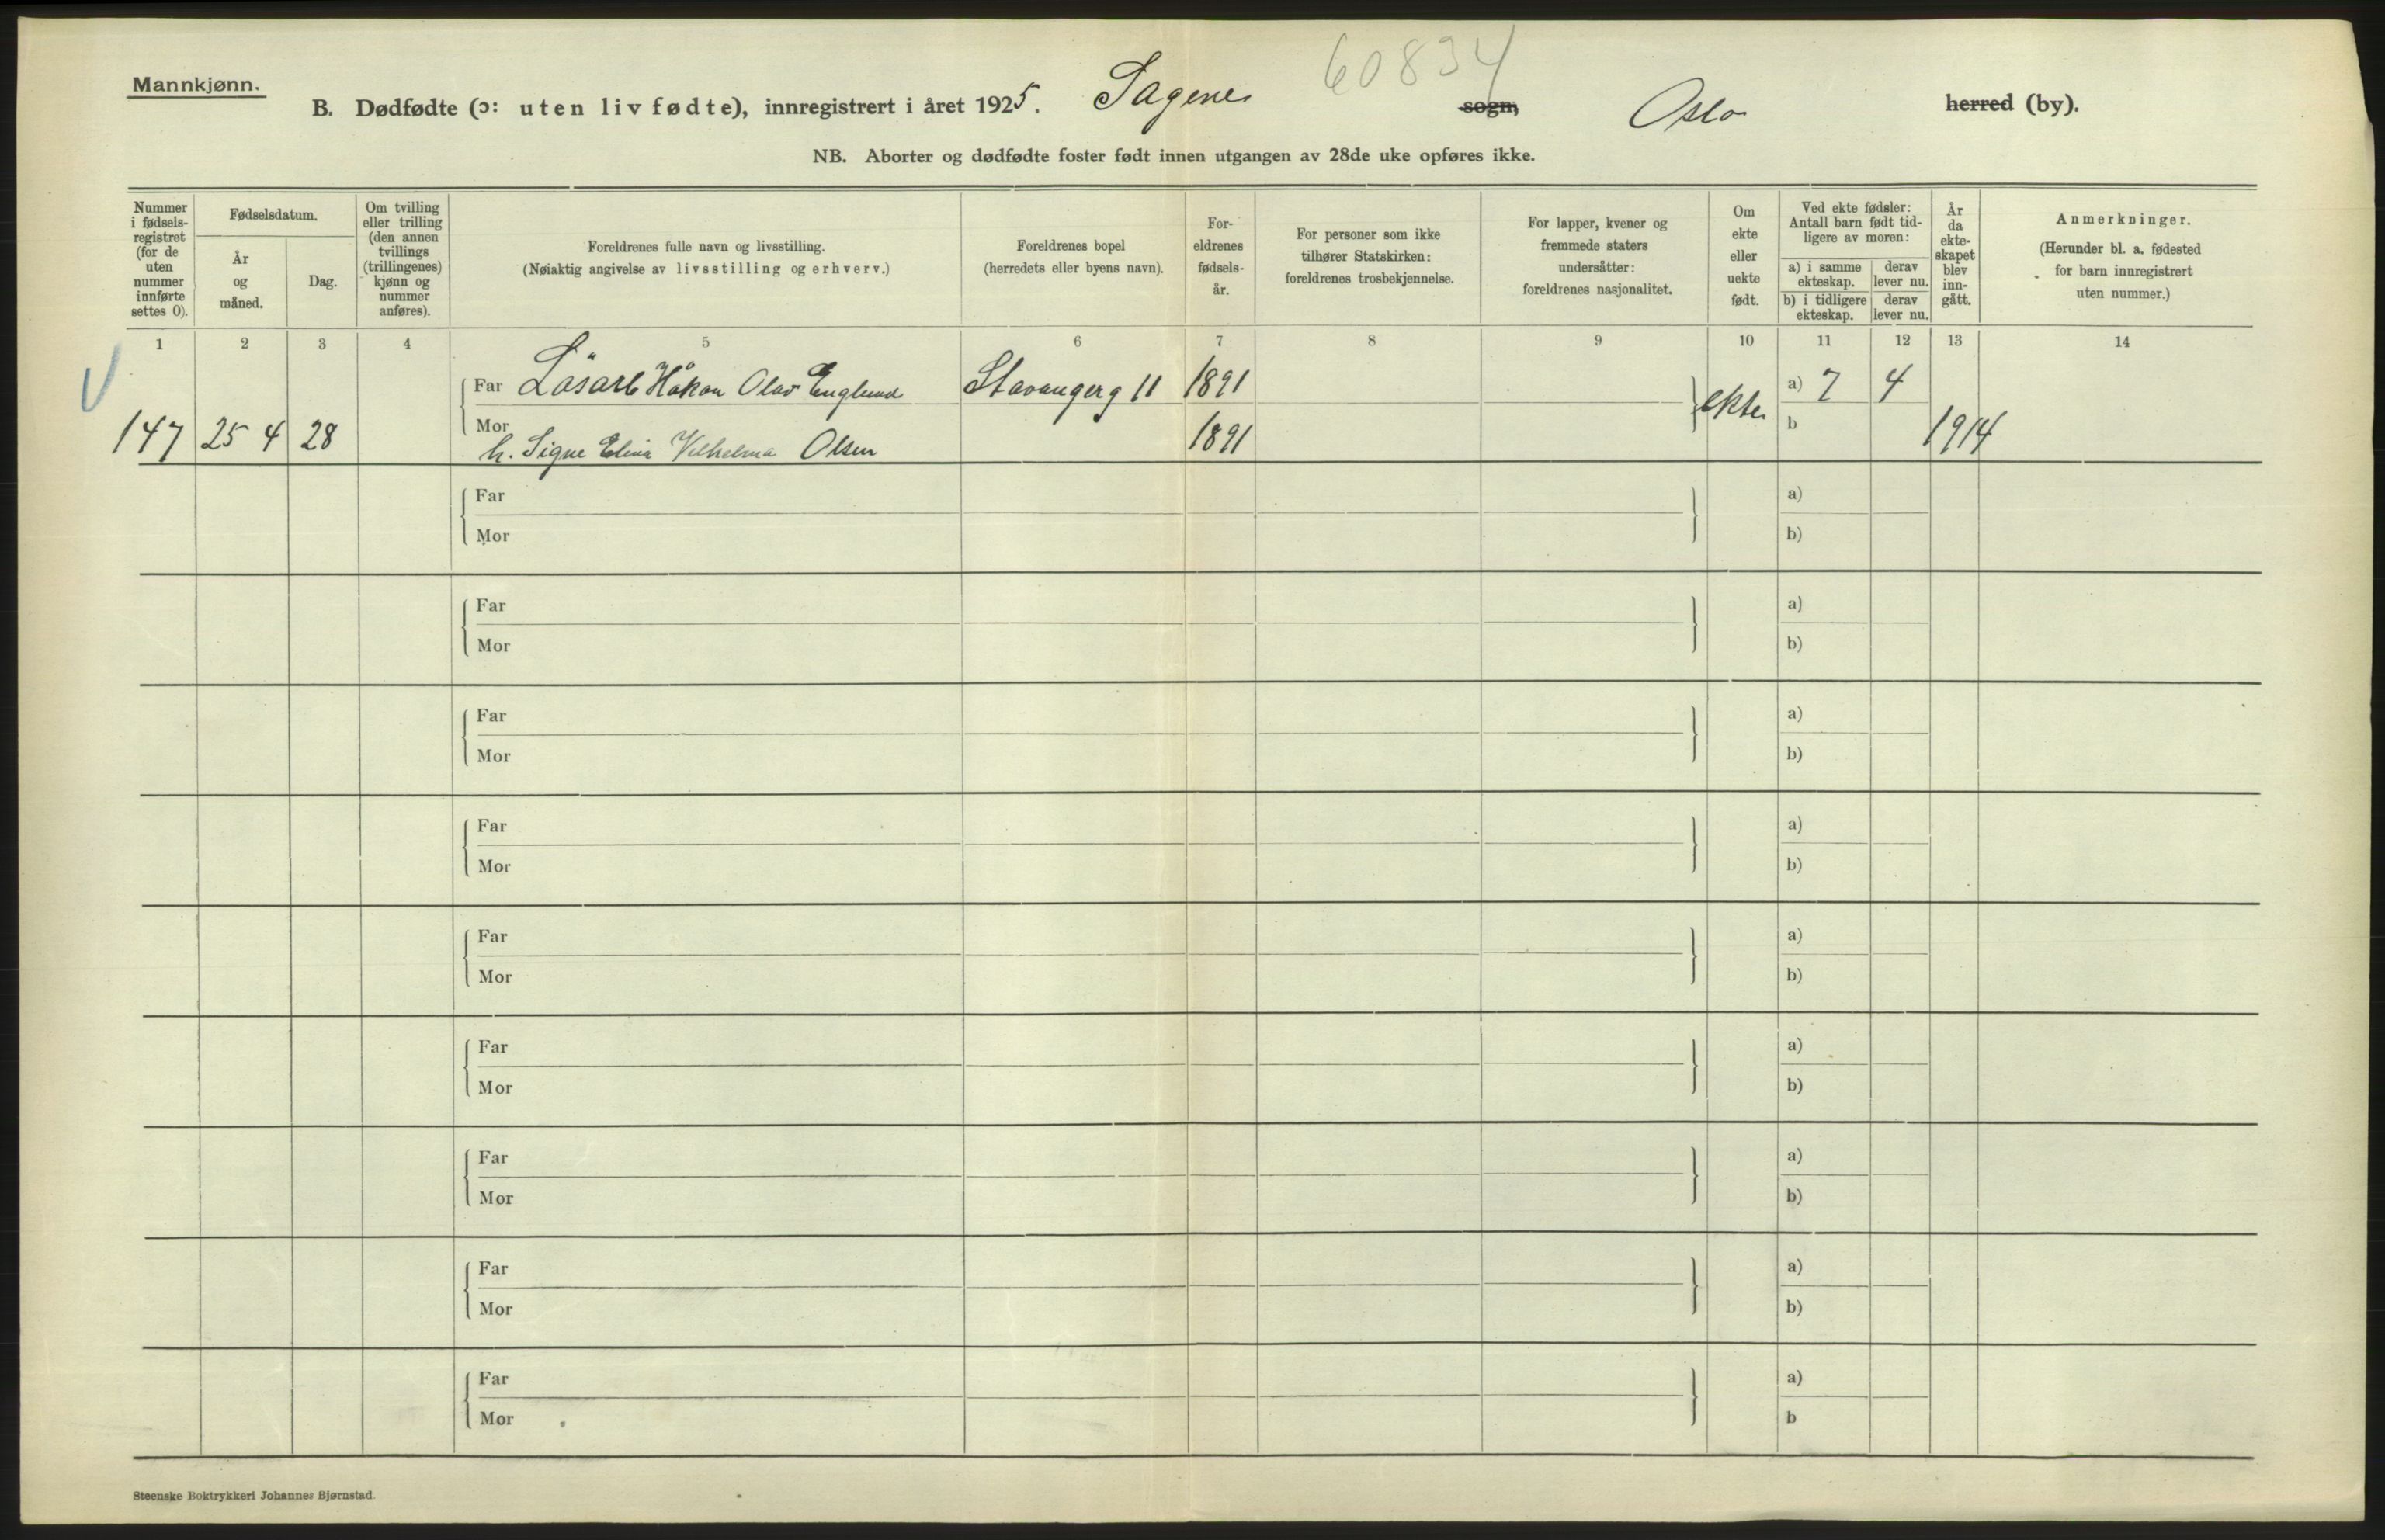 60834
Mannkjønn.
B. Dødfødte (ɔ: uten liv fødte), innregistrert i året 1925. Sagenes sogn, Oslo herred (by).
NB. Aborter og dødfødte foster født innen utgangen av 28de uke opføres ikke.
Nummer i fødsels-registret (for de uten nummer innførte settes 0).
Fødselsdatum.
År og måned.
Dag.
Om tvilling eller trilling (den annen tvillings (trillingenes) kjønn og nummer anføres).
Foreldrenes fulle navn og livsstilling.
(Nøiaktig angivelse av livsstilling og erhverv.)
Foreldrenes bopel
(herredets eller byens navn).
For-eldrenes fødsels-år.
For personer som ikke tilhører Statskirken: foreldrenes trosbekjennelse.
For lapper, kvener og fremmede staters undersåtter: foreldrenes nasjonalitet.
Om ekte eller uekte født.
Ved ekte fødsler: Antall barn født tid-ligere av moren:
a) i samme ekteskap.
derav lever nu.
b) i tidligere ekteskap.
derav lever nu.
År da ekte-skapet blev inn-gått.
Anmerkninger.
(Herunder bl. a. fødested for barn innregistrert uten nummer.)
1 2 3 4 5 6 7 8 9 10 11 12 13 14
Far Lösarb Håkon Olav Englund Stavangerg 11 1891 ekte a) 7 4
147 25 4 28 Mor h. Signe Elina Vilhelma Olsen 1891 b 1914
Far a)
Mor b)
Far a)
Mor b)
Far a)
Mor b)
Far a)
Mor b)
Far a)
Mor b)
Far a)
Mor b)
Far a)
Mor b)
Far a)
Mor b)
Far a)
Mor b
Steenske Boktrykkeri Johannes Bjørnstad.